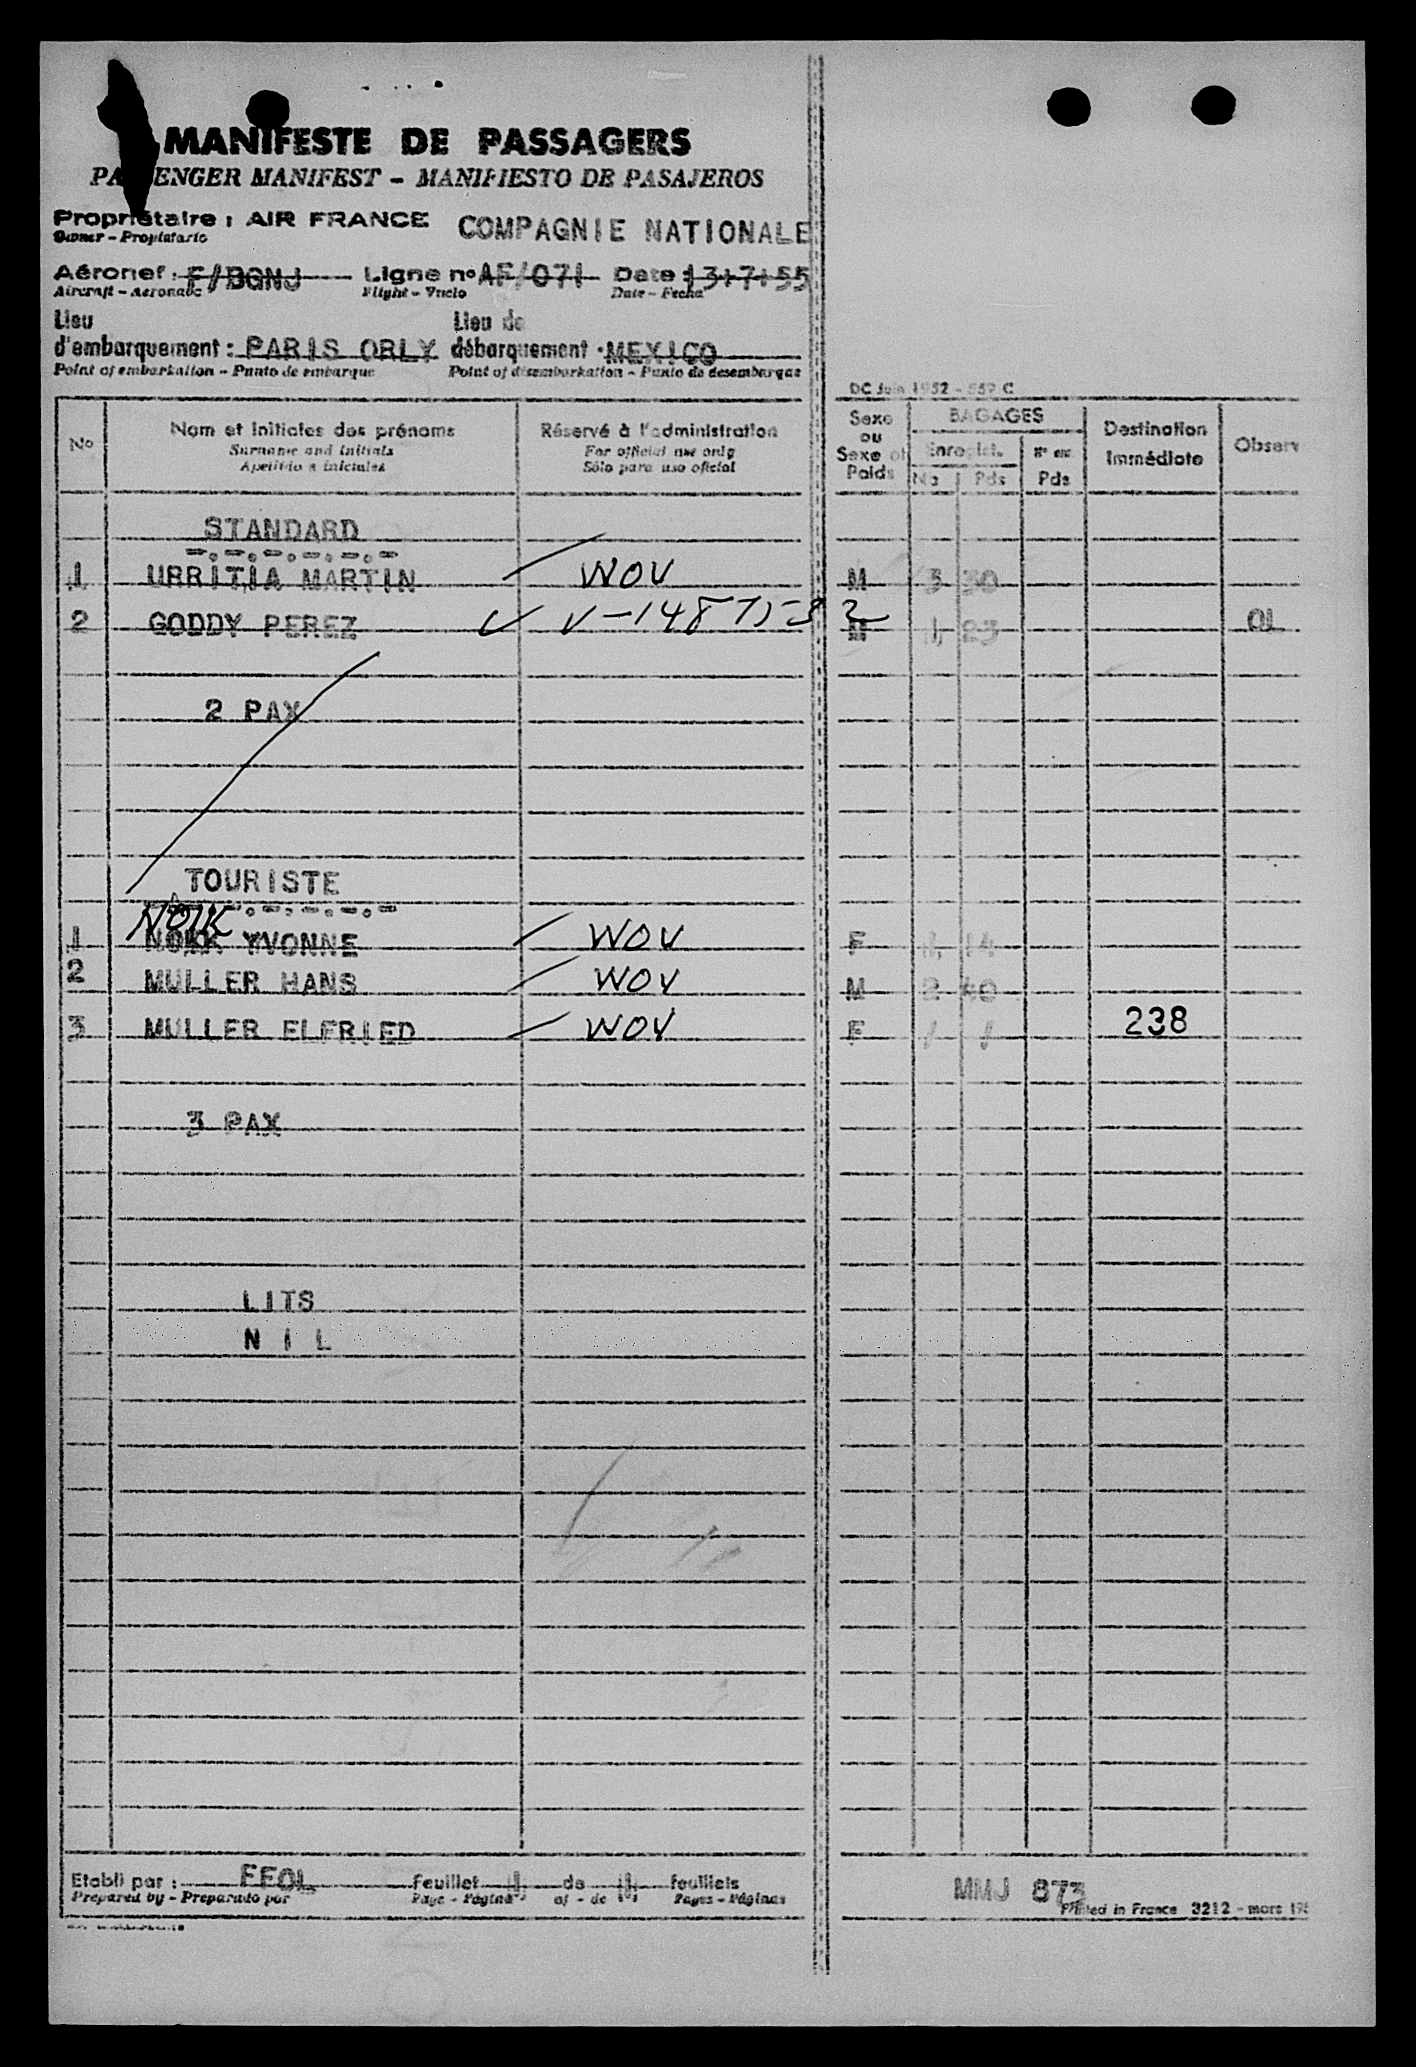 MANIFESTE DE PASSAGERS
PASSENGER MANIFEST – MANIFIESTO DE PASAJEROS
Propriétaire : AIR FRANCE COMPAGNIE NATIONALE
Owner – Propietario
Aéronef : F/BGNJ Ligne no AF/071 Date 13+7+55
Aircraft – Aeronave Flight – Vuelo Date – Fecha
Lieu d'embarquement : PARIS ORLY Lieu de débarquement : MEXICO
Point of embarkation – Punto de embarque Point of disembarkation – Punto de desembarque
DC Juin 1952 - 559 C
No Nom et initiales des prénoms Réservé à l'administration Sexe ou Sexe et Poids BAGAGES Destination Immédiate Observ
Surname and initials For official use only Enregist. N° en.
Apellido e iniciales Sólo para uso oficial No Pds Pds
STANDARD
1 URRITIA MARTIN WOV M 3 30
2 GODDY PEREZ V-1487532 M 1 23 OL
2 PAX
TOURISTE
NOIK
1 YVONNE WOV F 1 14
2 MULLER HANS WOV M 2 40
3 MULLER ELFRIED WOV F / / 238
3 PAX
LITS
N I L
Etabli par : FFOL Feuillet 1 de 1 feuillets MMJ 873
Prepared by – Preparado por Page – Página of – de Pages – Páginas
Printed in France 3212 - mars 195